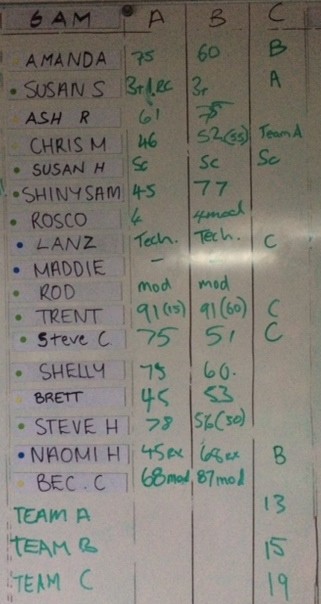 6AM A B C
AMANDA 75 60 B
SUSAN S 3r 3r A
ASH R 61 75
CHRIS M 46 52(55) Team A
SUSAN H Sc Sc Sc
SHINY SAM 45 77
ROSCO 4 4mod
LANZ Tech. Tech. C
MADDIE - -
ROD mod mod
TRENT 91(15) 91(60) C
Steve C 75 51 C
SHELLY 75 60.
BRETT 45 53
STEVE H 78 56(50)
NAOMI H 45rx 68rx B
BEC. C 68mod 87mod
TEAM A 13
TEAM B 15
TEAM C 19